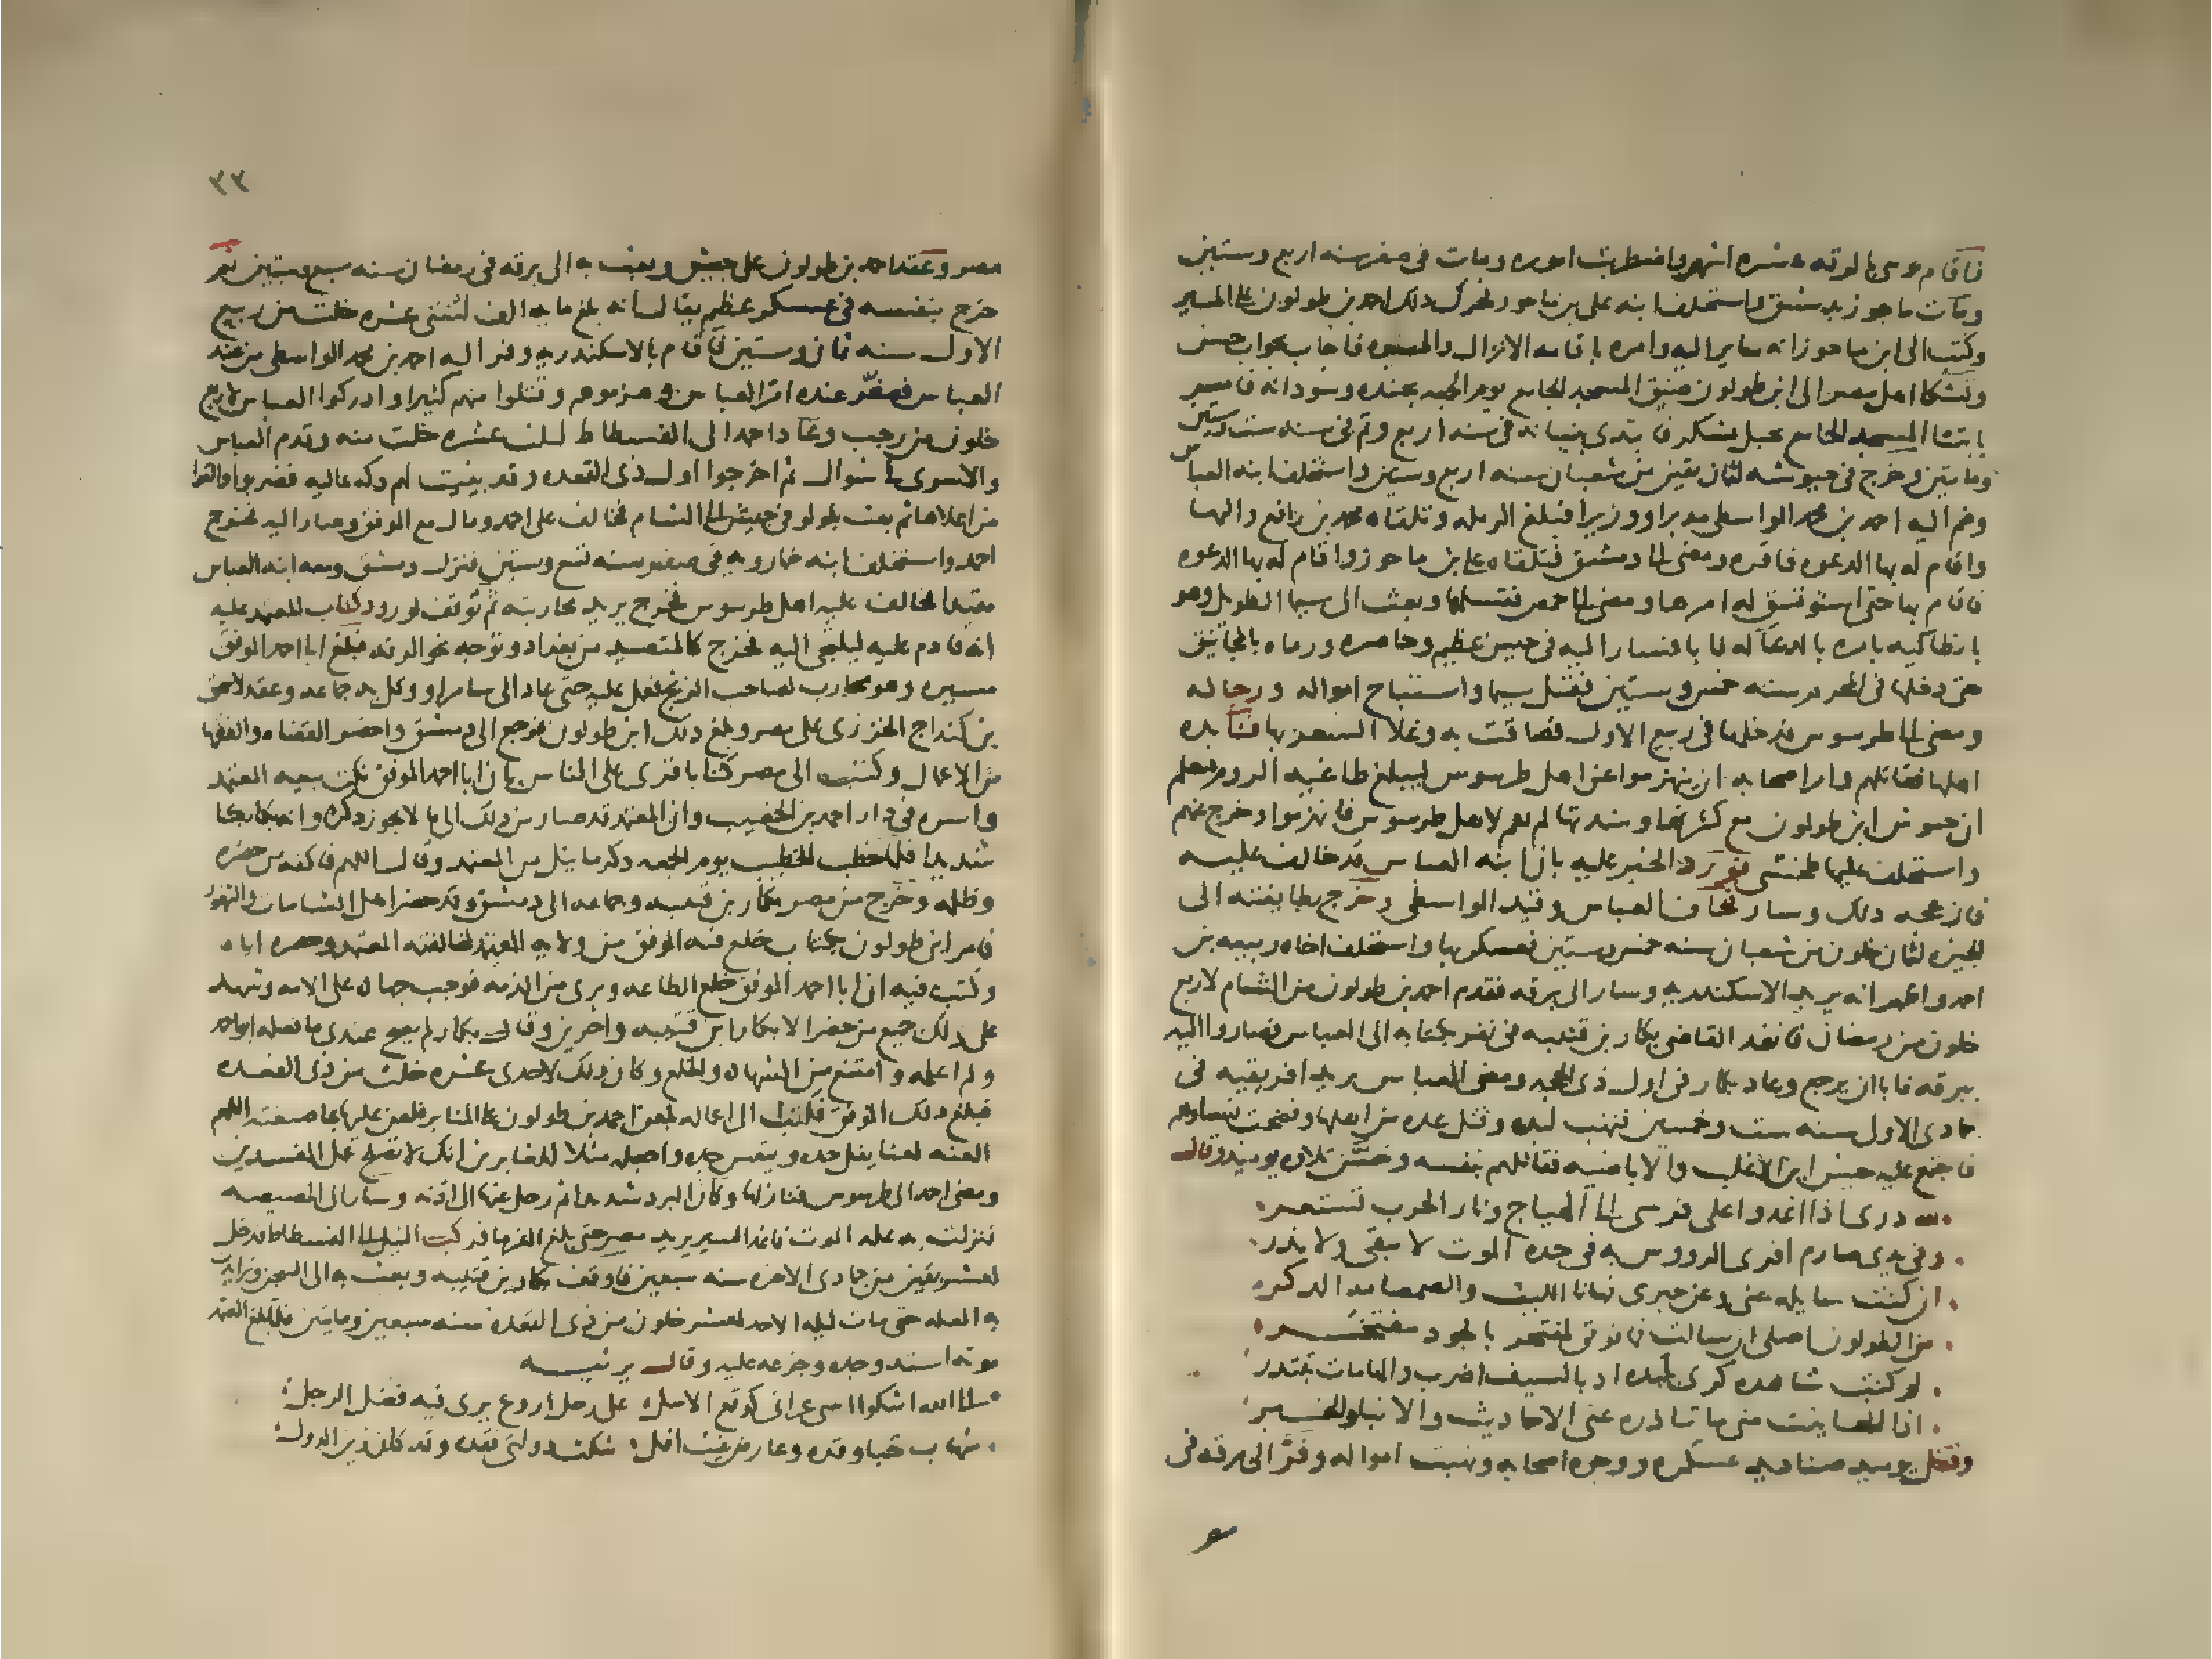 فاقام موسى بالرقه عشره اشهر واضطربت اموره ومات فى صفر سنه اربع وستين
ومات ماجور بدمشق واستخلف ابنه على بن ماجور فحرك ذلك احمد بن طولون على المسير
وكتب الى ابن ماجور انه ساير اليه وامره باقامه الانزال والميره فاجاب بجواب حسن
وشكا اهل مصر الى ابن طولون ضيق المسجد الجامع يوم الجمعه بجنده وسودانه فامر
بابتنا المسجد الجامع بجبل يشكر فابتدى ببنيانه فى سنه اربع وتم فى سنه ست وستين
ومايتين وخرج فى جيوشه لثمان بقين من شعبان سنه اربع وستين واستخلف ابنه العباس
وضم اليه احمد بن محمد الواسطى مدبرا ووزيرا فبلغ الرمله وتلقاه محمد بن رافع واليها
واقام له بها الدعوه فاقره ومضى الى دمشق فتلقاه على بن ماجور واقام له بها الدعوه
فاقام بها حتى استوثق له امرها ومضى الى حمص فتسلمها وبعث الى سيما الطويل وهو
بانطاكيه يامره بالدعا له فابا فسار اليه فى جيش عظيم وحاصره ورماه بالمجانيق
حتى دخلها فى المحرم سنه خمس وستين فقتل سيما واستباح امواله ورجاله
ومضى الى طرسوس فدخلها فى ربيع الاول فضاقت به وغلا السعر بها فنابذه
اهلها فقاتلهم وامر اصحابه ان ينهزموا عن اهل طرسوس ليبلغ طاغيه الروم فيعلم
ان جيوش ابن طولون مع كثرتها وشدتها لم تقم لاهل طرسوس فانهزموا وخرج عنهم
واستخلف عليها طخشى فورد الخبر عليه بان ابنه العباس قد خالف عليه
فازعجه ذلك وسار فخاف العباس وقيد الواسطى وخرج بطايفته الى
الجيزه لثمان خلون من شعبان سنه خمس وستين فعسكر بها واستخلف اخاه ربيعه بن
احمد واظهر انه يريد الاسكندريه وسار الى برقه فقدم احمد بن طولون من الشام لاربع
خلون من رمضان فانفذ القاضى بكار بن قتيبه فى نفر بكتابه الى العباس فصاروا اليه
ببرقه فابا ان يرجع وعاد بكار فى اول ذى الحجه ومضى العباس يريد افريقيه فى
جمادى الاول سنه ست وخمسين فنهب لبده وقتل عده من اهلها وضجت نساوهم
فاجتمع عليه جيش ابن الاغلب والاباضيه فقاتلهم بنفسه وحسن بلاوه يوميذ وقال
لله درى اذ اغدوا على فرسى الى الهياج ونار الحرب تستعر
وفى يدى صارم افرى الرووس به فى حده الموت لا يبقى ولا يذر
ان كنت سايله عنى وعن خبرى فهانا الليث والصمصامه الذكر
من ال طولون اصلى ان سالت فما فوقى لمفتخر بالجود مفتخر
لو كنت شاهده كرى بلبده اذ بالسيف اضرب والهامات تبتدر
اذا لعاينت منى ما تبادره عنى الاحاديث والانبا والخبر
وقتل يوميذ صناديد عسكره ووجوه اصحابه ونهبت امواله وفر الى برقه فى
مصر
٣٣
مصر وعقد احمد بن طولون على جيش وبعث به الى برقه فى رمضان سنه سبع وستين ثم
خرج بنفسه فى عسكر عظيم يقال انه بلغ مايه الف لثنتى عشره خلت من ربيع
الاول سنه ثمان وستين فاقام بالاسكندريه وفر اليه احمد بن محمد الواسطى من عند
العباس فصغر عنده امر العباس وهزموهم وقتلوا منهم كثيرا وادركوا العباس لاربع
خلون من رجب وعاد احمد الى الفسطاط لثلث عشره خلت منه وقدم العباس
والاسرى فى شوال ثم اخرجوا اول ذى القعده وقد بنيت لهم دكه عاليه فضربوا والقوا
من اعلاها ثم بعث بلولو فى جيش الى الشام فخالف على احمد ومال مع الموفق وصار اليه فخرج
احمد واستخلف ابنه خمارويه فى صفر سنه تسع وستين فنزل دمشق ومعه ابنه العباس
مقيدا فخالف عليه اهل طرسوس فخرج يريد محاربته ثم توقف لورود كتاب المعتمد عليه
انه قادم عليه ليلتجى اليه فخرج كالمتصيد من بغداد وتوجه نحو الرقه فبلغ ابا احمد الموفق
مسيره وهو محارب لصاحب الزنج فعمل عليه حتى عاد الى سامرا ووكل به جماعه وعقد لاسحق
بن كنداج الخزرى على مصر وبلغ ذلك ابن طولون فرجع الى دمشق واحضر القضاه والفقها
من الاعمال وكتب الى مصر كتابا قرى على الناس بان ابا احمد الموفق نكث بيعه المعتمد
واسره فى دار احمد بن الخصيب وان المعتمد قد صار من ذلك الى ما لا يجوز ذكره وانه بكا بكا
شديدا فلما خطب الخطيب يوم الجمعه ذكر ما نيل من المعتمد وقال اللهم فاكفه من حصره
وظلمه وخرج من مصر بكار بن قتيبه وجماعه الى دمشق وقد حضر اهل الشامات والثغور
فامر ابن طولون بكتاب خلع فيه الموفق من ولايه العهد لمخالفته المعتمد وحصره اياه
وكتب فيه ان ابا احمد الموفق خلع الطاعه وبرى من الذمه فوجب جهاده على الامه وشهد
على ذلك جميع من حضر الا بكار ابن قتيبه واخرين وقال بكار لم يصح عندى ما فعله ابو احمد
ولم اعلمه وامتنع من الشهاده والخلع وكان ذلك لاحدى عشره خلت من ذى القعده
فبلغ ذلك الموفق فكتب الى اعماله بلعن احمد بن طولون على المنابر فلعن عليها بما صيغته اللهم
العنه لعنا يفل حده ويتعس جده واجعله مثلا للغابرين انك لا تصلح عمل المفسدين
ومضى احمد الى طرسوس فنازلها وكان البرد شديدا ثم رحل عنها الى اذنه وسار الى المصيصه
فنزلت به عله الموت فاغذ السير يريد مصر حتى بلغ الفرما فركب النيل الى الفسطاط فدخل
لعشر بقين من جمادى الاخره سنه سبعين فاوقف بكار بن قتيبه وبعث به الى السجن وتزايدت
به العله حتى مات ليله الاحد لعشر خلون من ذى القعده سنه سبعين ومايتين فلما بلغ المعتمد
موته اشتد وجده وجزعه عليه وقال يرثيه
الى الله اشكوا اسى عرانى كوقع الاسل على رجل اروع يرى فيه فضل الرجل
شهاب خبا وقده وعارض غيث افل شكت دولتى فقده وقد كان زين الدول